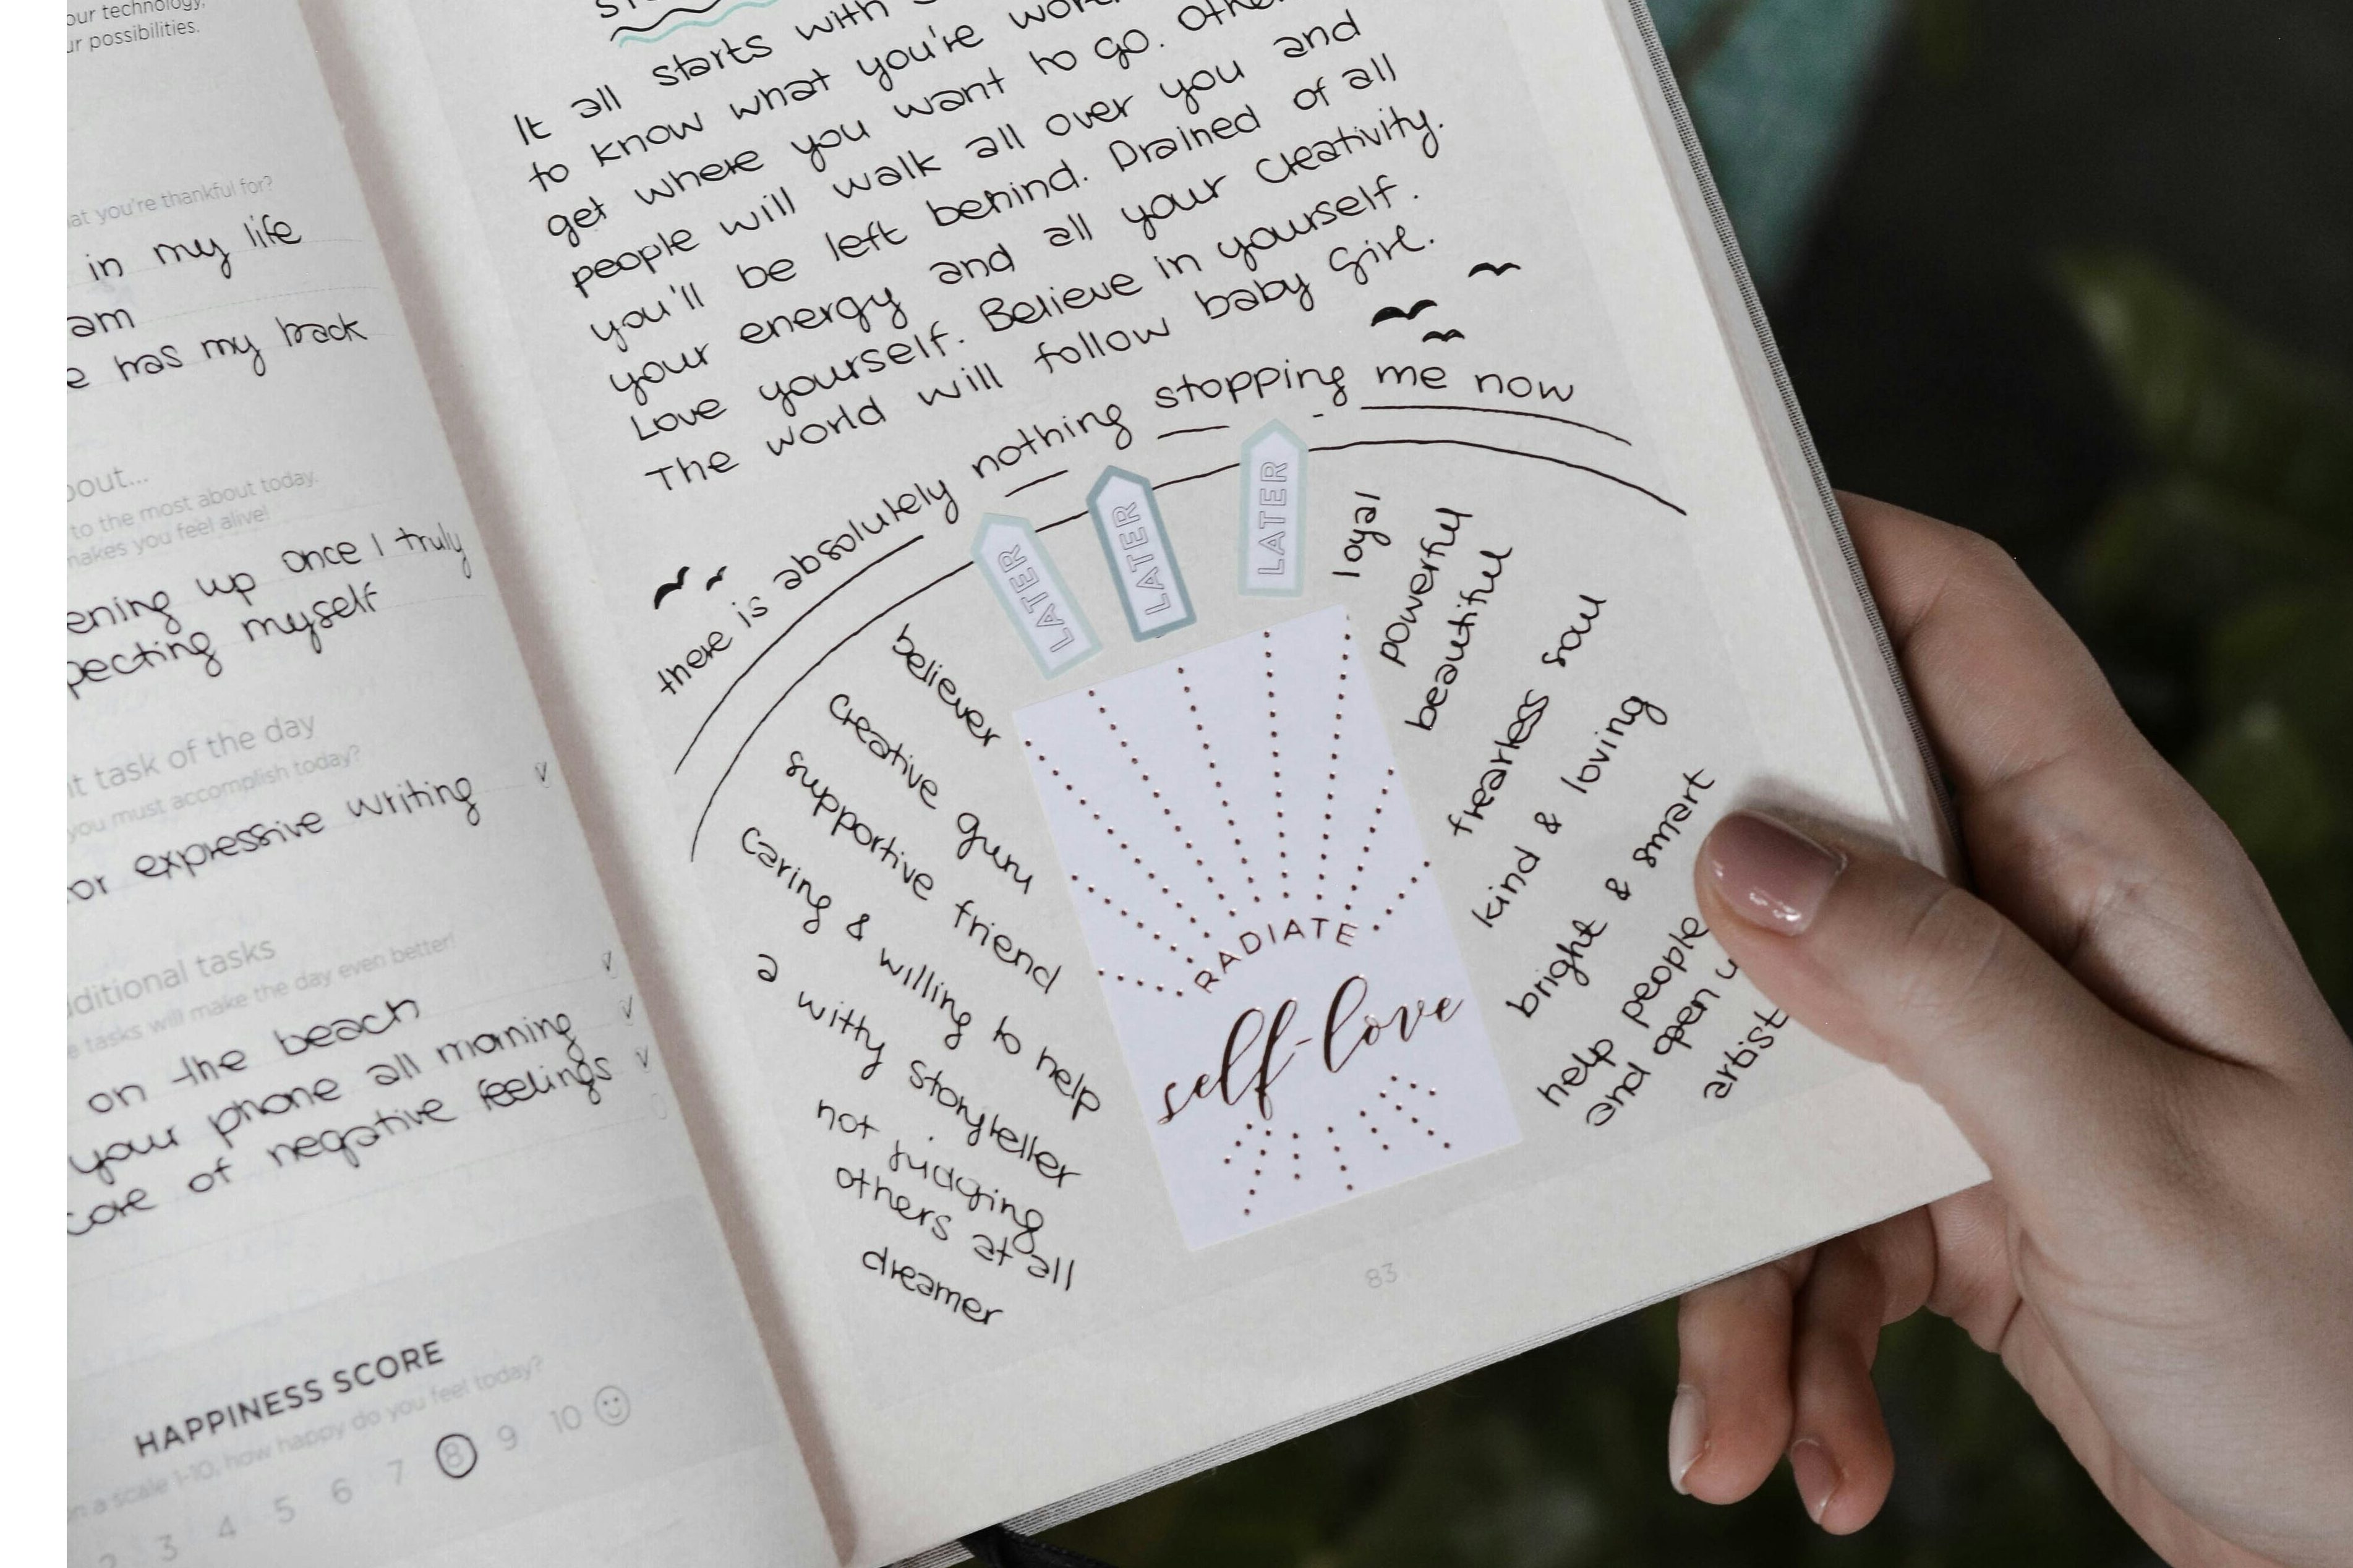 our technology,
possibilities.
you're thankful for?
in my life
am
has my back
to the most about today.
makes you feel alive!
up once I truly
myself
task of the day
you must accomplish today?
expressive writing
tasks
tasks will make the day even better!
on the beach
your phone all morning
of negative feelings
HAPPINESS SCORE
a scale 1-10, how happy do you feel today?
3 4 5 6 7 8 9 10
It all starts with
to know what you're
get where you want to go.
people will walk all over you and
you'll be left behind. Drained of all
your energy and all your creativity.
Love yourself. Believe in yourself.
The world will follow baby girl.
there is absolutely nothing stopping me now
LATER
LATER
LATER
believer
creative guru
supportive friend
caring & willing to help
a witty storyteller
not judging
others at all
dreamer
RADIATE
self-love
loyal
powerful
beautiful
fearless soul
kind & loving
bright & smart
help people
and open
artist
83